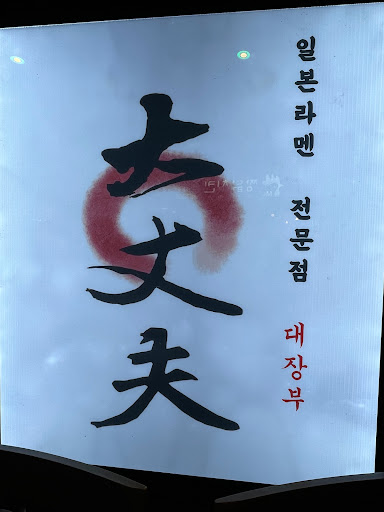 大丈夫
일본라멘 전문점 대장부